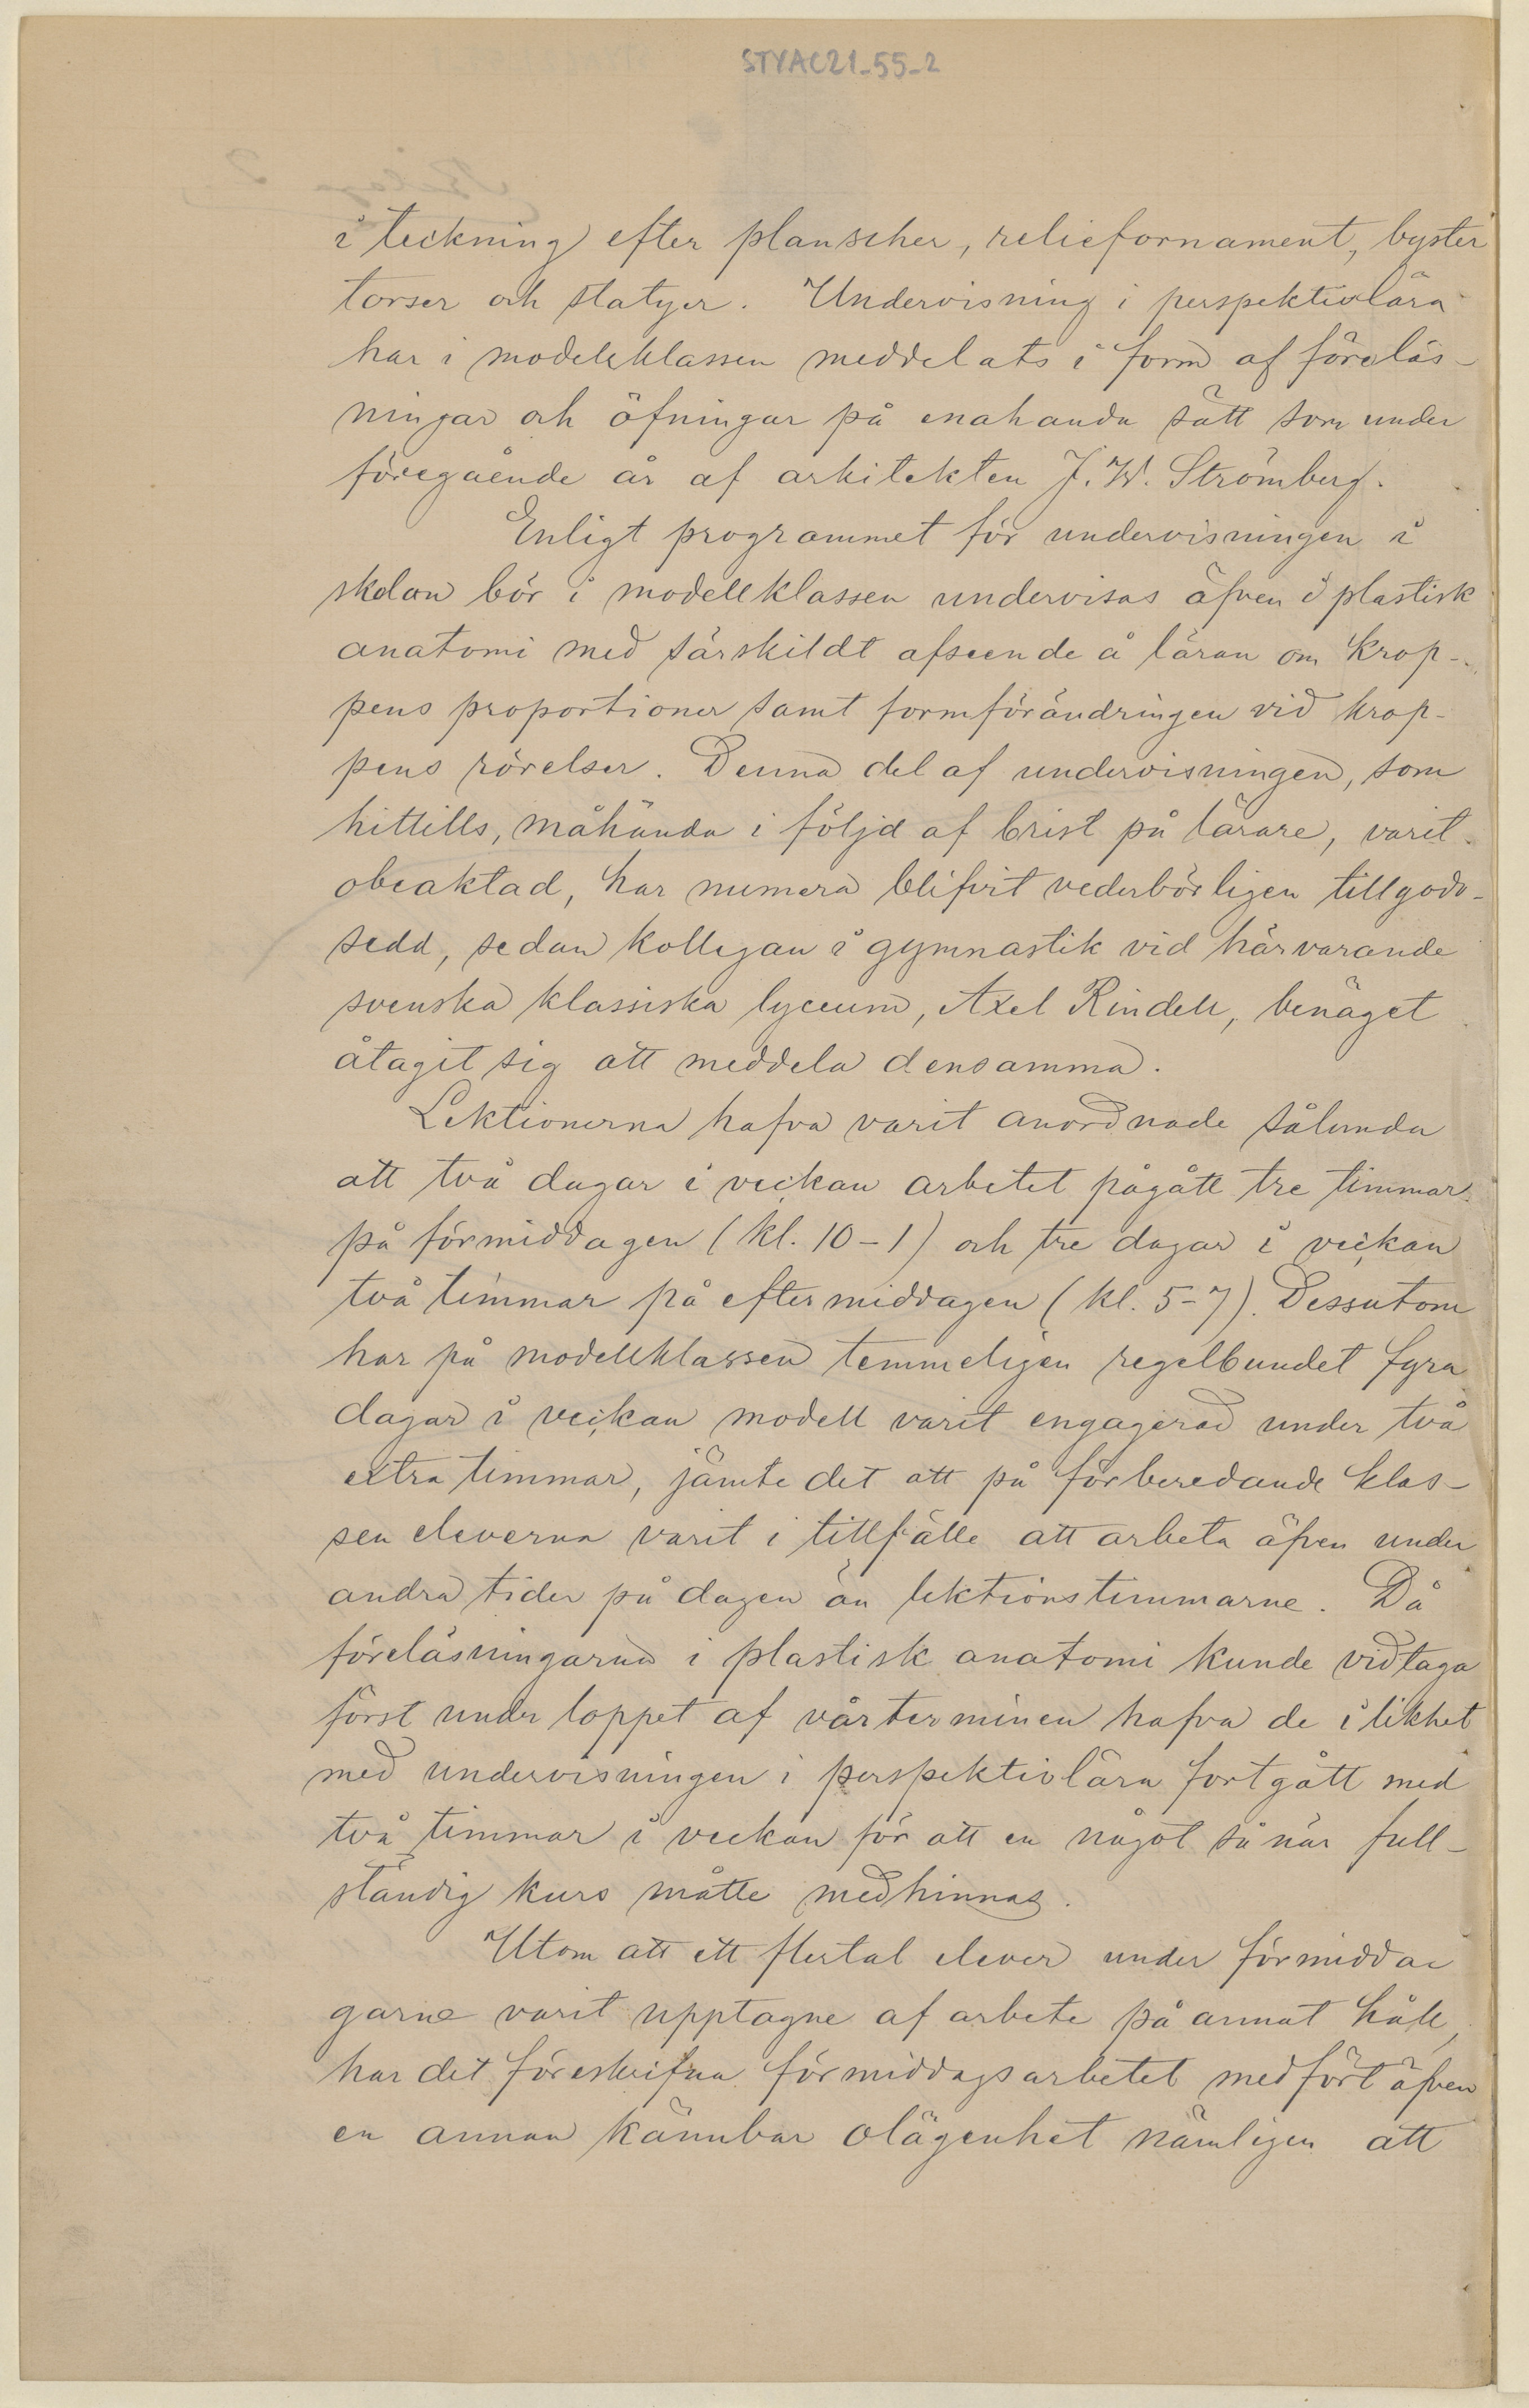 STYAC21_55_2
i teckning efter planscher, reliefornament, byster
torser och statyer. Undervisning i perspektivlära
har i modellklassen meddelats i form af föreläs-
ningar och öfningar på enahanda sätt som under
föregående år af arkitekten J. W. Strömberg.
Enligt programmet för undervisningen i
skolan bör i modellklassen undervisas äfven i plastisk
anatomi med särskildt afseende å läran om krop-
pens proportioner samt formförändringen vid krop-
pens rörelser. Denna del af undervisningen, som
hittills, måhända i följd af brist på lärare, varit
obeaktad, har numera blifvit vederbörligen tillgodo-
sedd, sedan kollegan i gymnastik vid härvarande
svenska klassiska lyceum, Axel Rindell, benäget
åtagit sig att meddela densamma.
Lektionerna hafva varit anordnade sålunda
att två dagar i veckan arbetet pågått tre timmar
på förmiddagen (kl. 10-1) och tre dagar i veckan
två timmar på eftermiddagen (kl. 5-7). Dessutom
har på modellklassen temmeligen regelbundet fyra
dagar i veckan modell varit engagerad under två
extra timmar, jämte det att på förberedande klas-
sen eleverna varit i tillfälle att arbeta äfven under
andra tider på dagen än lektionstimmarne. Då
föreläsningarna i plastisk anatomi kunde vidtaga
först under loppet af vårterminen hafva de i likhet
med undervisningen i perspektivlära fortgått med
två timmar i veckan för att en något så när full-
ständig kurs måtte medhinnas.
Utom att ett flertal elever under förmidda
garne varit upptagne af arbete på annat håll,
har det föreskrifna förmiddagsarbetet medfört äfven
en annan kännbar olägenhet nämligen att